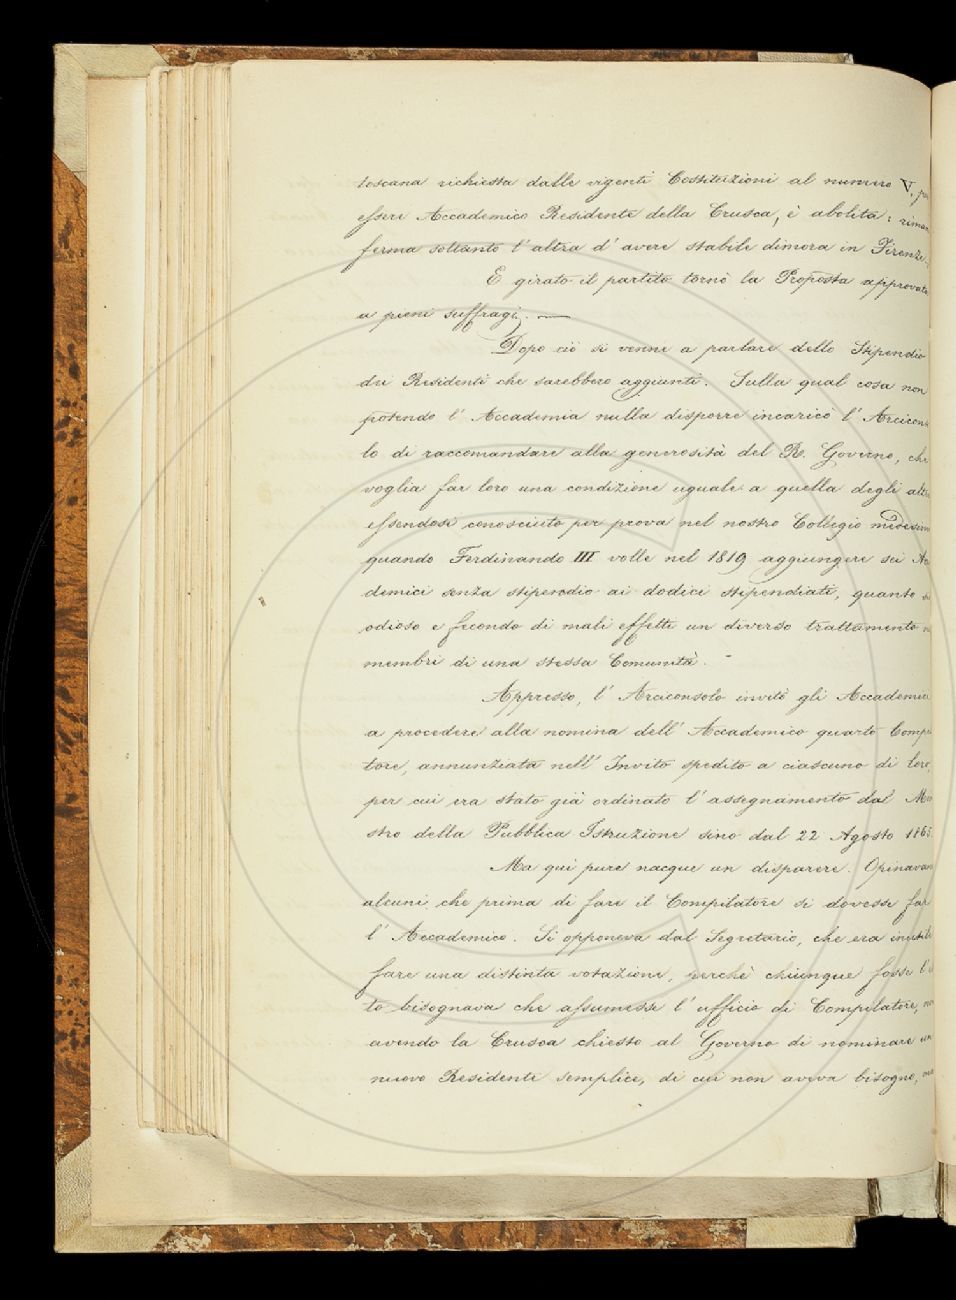 toscana richiesta dalle vigenti Costituzioni al numero V. per
essere Accademico Residente della Crusca, è abolita: riman
ferma soltanto l' altra d' avere stabile dimora in Firenze.
E girato il partito tornò la Proposta approvata
a pieni suffragj. —
Dopo ciò si venne a parlare dello Stipendio
dei Residenti che sarebbero aggiunti. Sulla qual cosa non
potendo l' Accademia nulla disporre incaricò l' Arcicon
lo di raccomandare alla generosità del R. Governo, che
voglia far loro una condizione uguale a quella degli altri
essendosi conosciuto per prova nel nostro Collegio medesim
quando Ferdinando III volle nel 1819 aggiungere sei Ac
demici senza stipendio ai dodici stipendiati, quanto
odioso e fecondo di mali effetti un diverso trattamento
membri di una stessa Comunità. -
Appresso, l' Arciconsolo invitò gli Accademici
a procedere alla nomina dell' Accademico quarto Compi
tore, annunziata nell' Invito spedito a ciascuno di loro,
per cui era stato già ordinato l' assegnamento dal Mi
stro della Pubblica Istruzione sino dal 22 Agosto 1865
Ma qui pure nacque un disparere. Opinavan
alcuni che prima di fare il Compilatore si dovesse far
l' Accademico. Si opponeva dal Segretario, che era inutile
fare una distinta votazione, perchè chiunque fosse l' e
to bisognava che assumesse l' ufficio di Compilatore, non
avendo la Crusca chiesto al Governo di nominare un
nuovo Residente semplice, di cui non aveva bisogno,